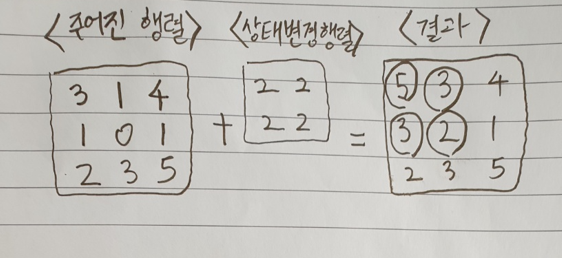 <주어진 행렬> <상태변경행렬> <결과>
3 1 4 2 2 5 3 4
1 0 1 + 2 2 = 3 2 1
2 3 5 2 3 5